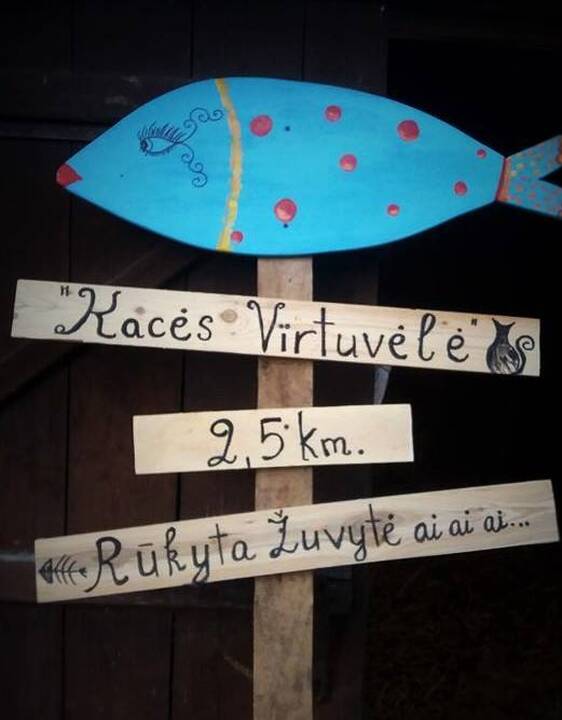 "Kacės Virtuvėlė"
2,5 km.
Rūkyta Žuvytė ai ai ai...